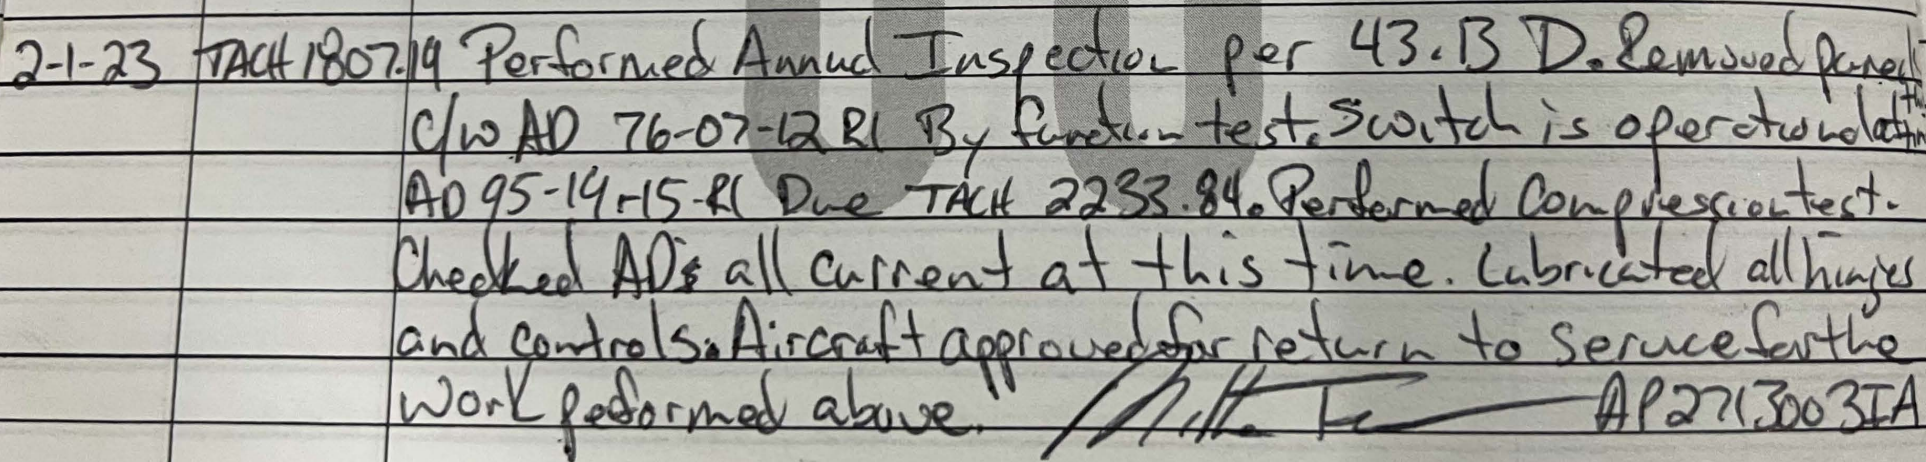 2-1-23 TACH 1807.19 Performed Annual Inspection per 43.13 D. Removed panels
C/W AD 76-07-12 R1 By function test. Switch is operational at this
AD 95-19-15-R1 Due TACH 2233.84. Performed Compression test.
Checked AD's all current at this time. Lubricated all hinges
and controls. Aircraft approved for return to service for the
work peformed above." AP2713003IA